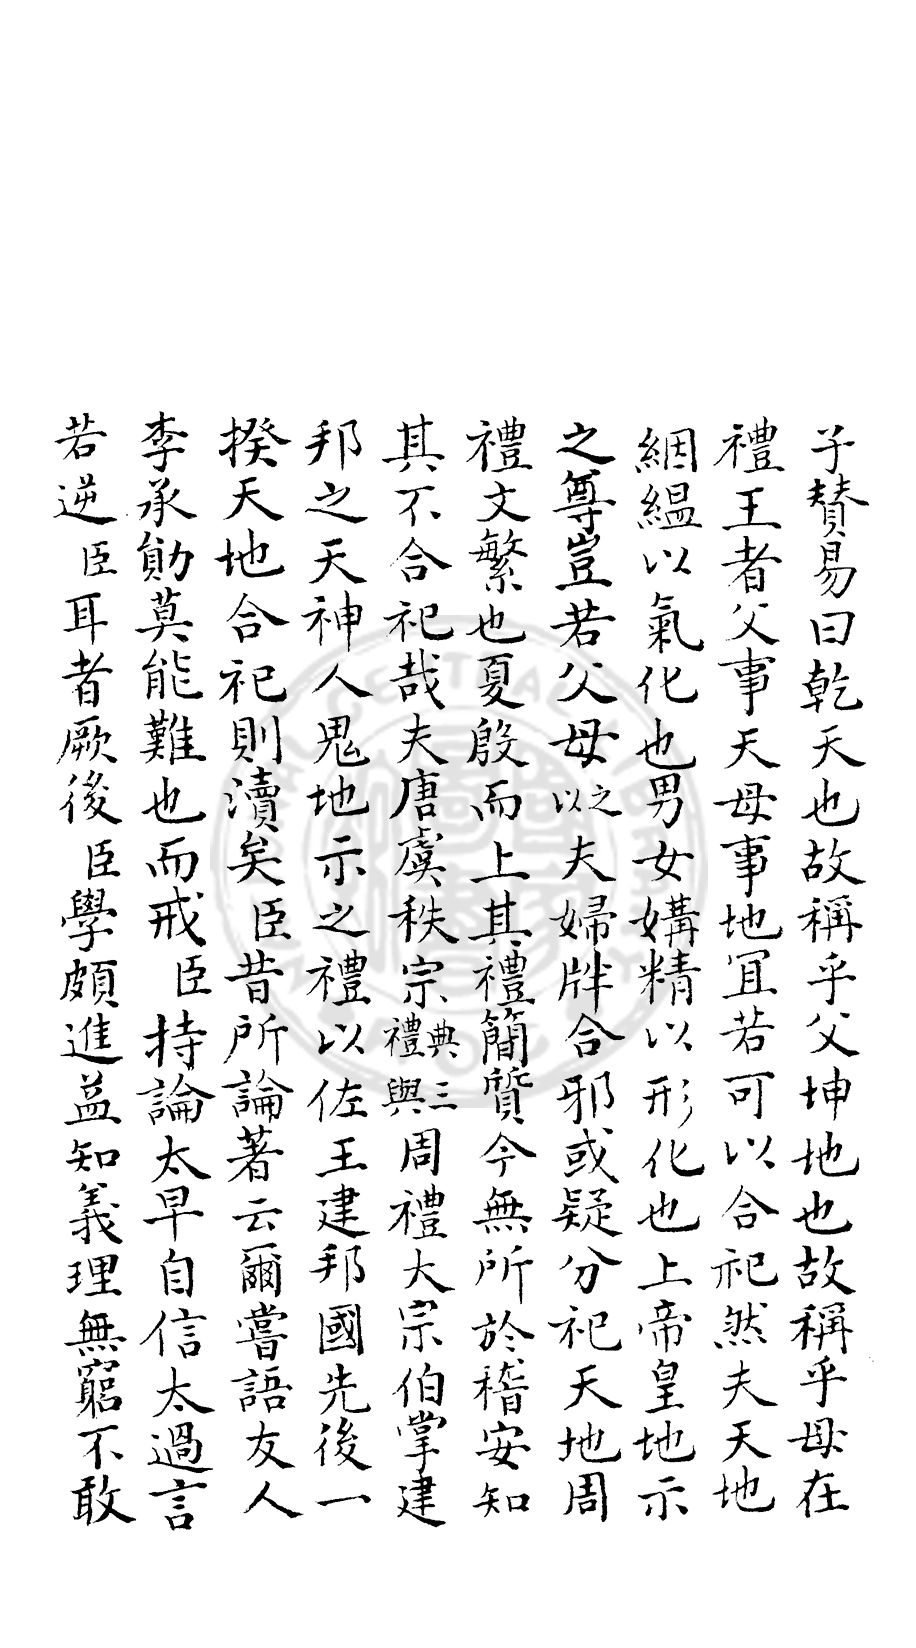 子贊易曰乾天也故稱乎父坤地也故稱乎母在
禮王者父事天母事地冝若可以合祀然夫天地
絪縕以氣化也男女媾精以形化也上帝皇地示
之尊豈若父母以之夫婦牉合邪或疑分祀天地周
禮文繁也夏殷而上其禮簡質今無所於稽安知
其不合祀哉夫唐虞秩宗典三禮與周禮大宗伯掌建
邦之天神人鬼地示之禮以佐王建邦國先後一
揆天地合祀則瀆矣臣昔所論著云爾嘗語友人
李承勛莫能難也而戒臣持論太早自信太過言
若逆臣耳者厥後臣學頗進益知義理無窮不敢